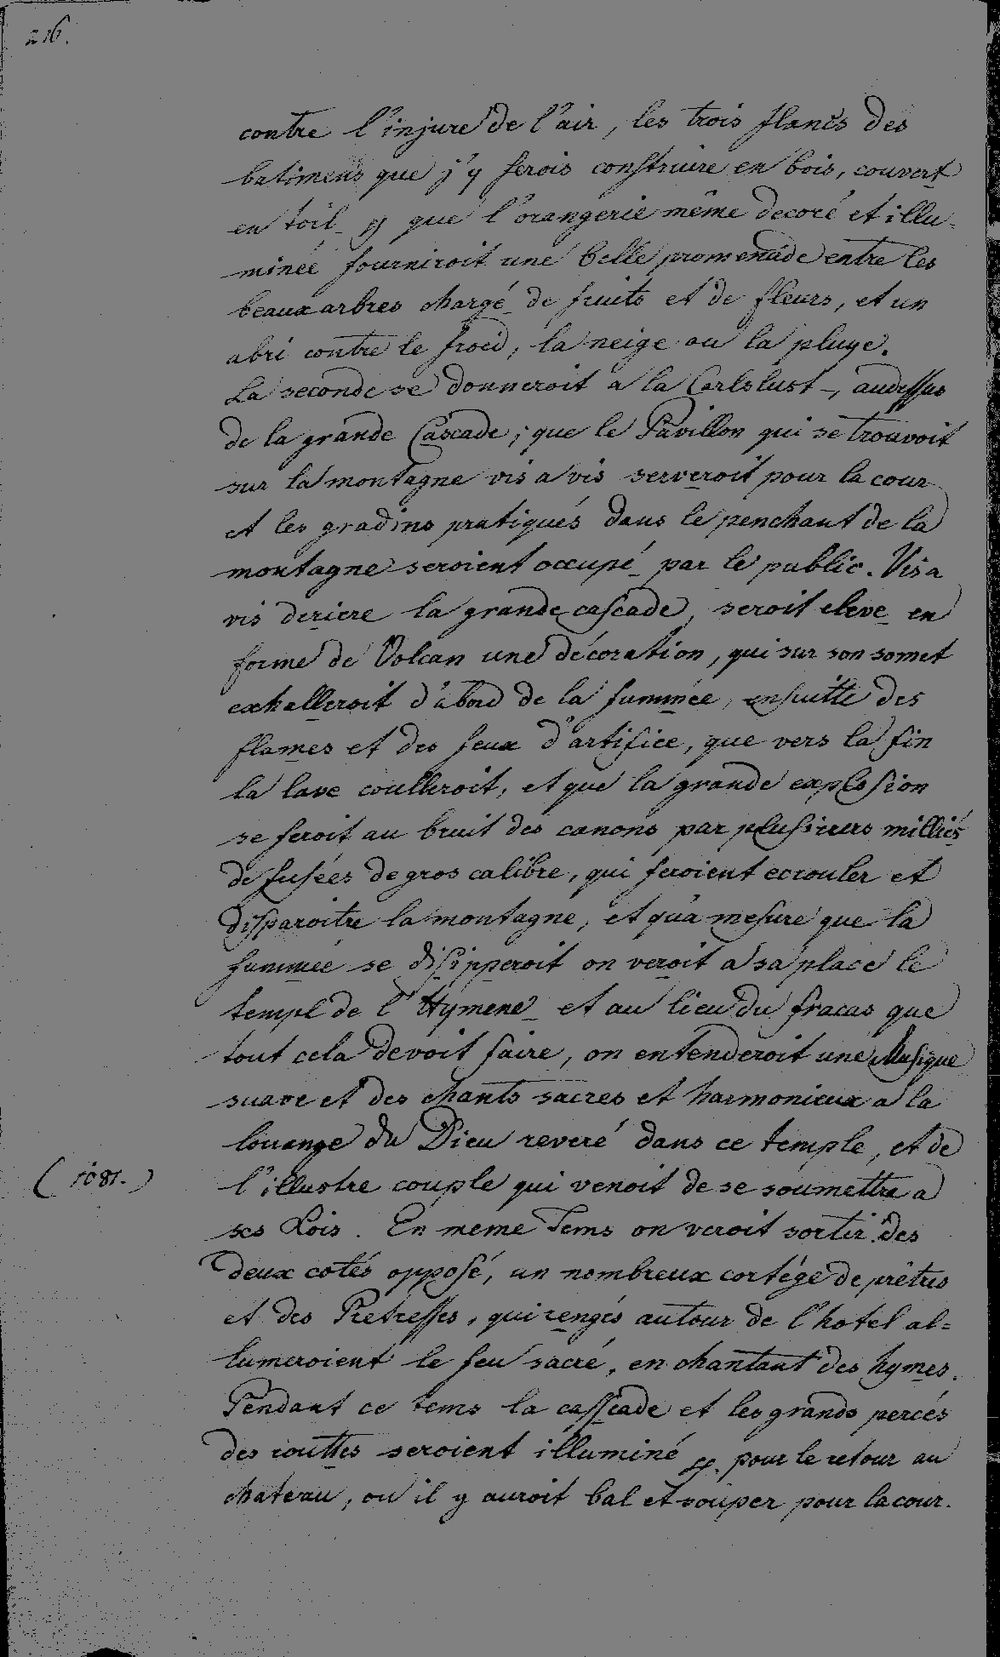 216.
contre l'injure de l'air, les trois flancs des
batimens que j'y ferois construire en bois, couvert
en toil_ que l'orangerie même decoré et illu-
minée fourniroit une belle promenade entre les
beaux arbres chargé_ de fruits et de fleurs, et un
abri contre le froid, la neige ou la pluye.
La seconde se donneroit a la Carlslust_, audessus
de la grande Cascade; que le Pavillon qui se trouvoit
sur la montagne vis a vis serveroit pour la cour
et les gradins pratiqués dans le penchant de la
montagne seroient occupé_ par le public. Vis a
vis deriere la grande cascade, seroit elevé_ en
forme de Volcan une décoration, qui sur son somet
exhalleroit d'abord de la fummée, ensuitte des
flames et des feux d'artifice, que vers la fin
la lave coulleroit, et que la grande explosion
se feroit au bruit des canons par plusieurs milliés
de fusées de gros calibre, qui feroient ecrouler et
disparoitre la montagne, et qu'a mesure que la
fummée se disipperoit on veroit a sa place le
templ de l'Hymene_ et au lieu du fracas que
tout cela devoit faire, on entenderoit une Musique
suave et des chants sacres et harmonieux a la
louange du Dieu reveré dans ce temple, et de
(1081.) l'illustre couple qui venoit de se soumettre a
ses Lois. En meme Tems on veroit sortir des
deux cotés opposé, un nombreux cortége de prêtres
et des Pretresses, qui rengés autour de l'hotel al=
lumeroient le feu sacré, en chantant des hymes.
Pendant ce tems la casscade et les grands percés
des routtes seroient illuminé pour le retour au
chateau, ou il y auroit bal et souper pour la cour.